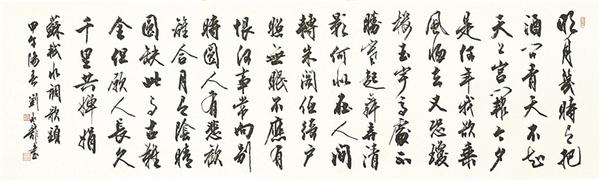 明月幾時有把
酒問青天不知
天上宮闕今夕
是何年我欲乘
風歸去又恐瓊
樓玉宇高處不
勝寒起舞弄清
影何似在人間
轉朱閣低綺戶
照無眠不應有
恨何事常向別
時圓人有悲歡
離合月有陰晴
圓缺此事古難
全但願人長久
千里共嬋娟
蘇軾水調歌頭
甲午陽春劉書